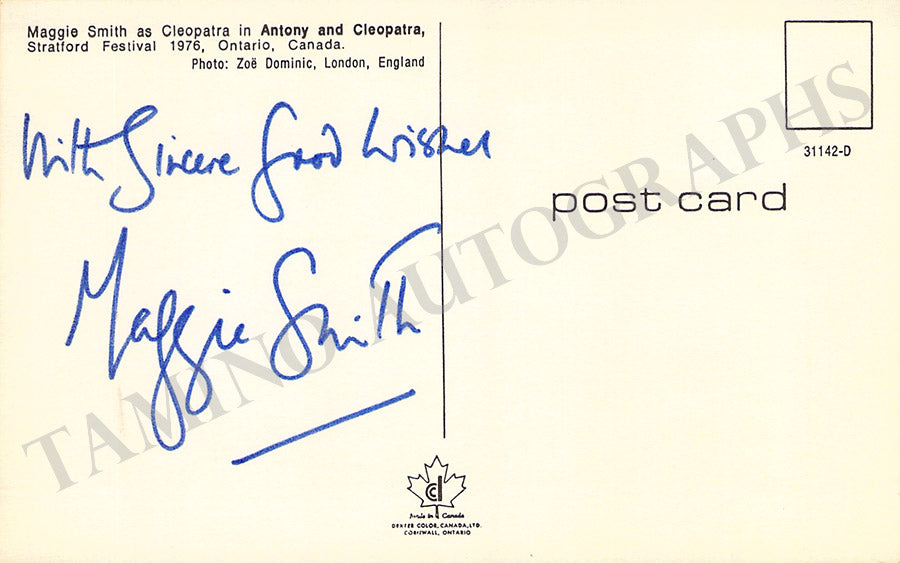 Maggie Smith as Cleopatra in Antony and Cleopatra,
Stratford Festival 1976, Ontario, Canada.
Photo: Zoë Dominic, London, England
With Sincere Good Wishes
Maggie Smith
31142-D
post card
TAMINO AUTOGRAPHS
cd
Made in Canada
DEXTER COLOR, CANADA, LTD.
CORNWALL, ONTARIO